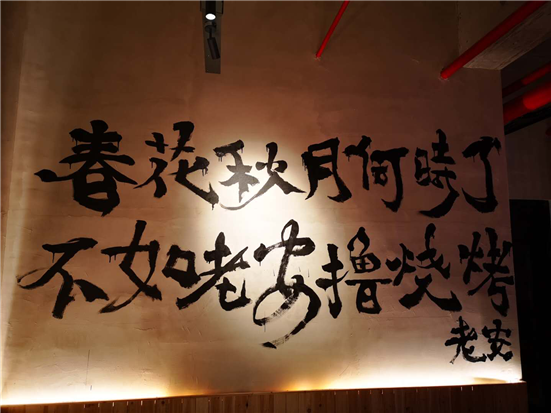 春花秋月何時了
不如老安撸烧烤
老安